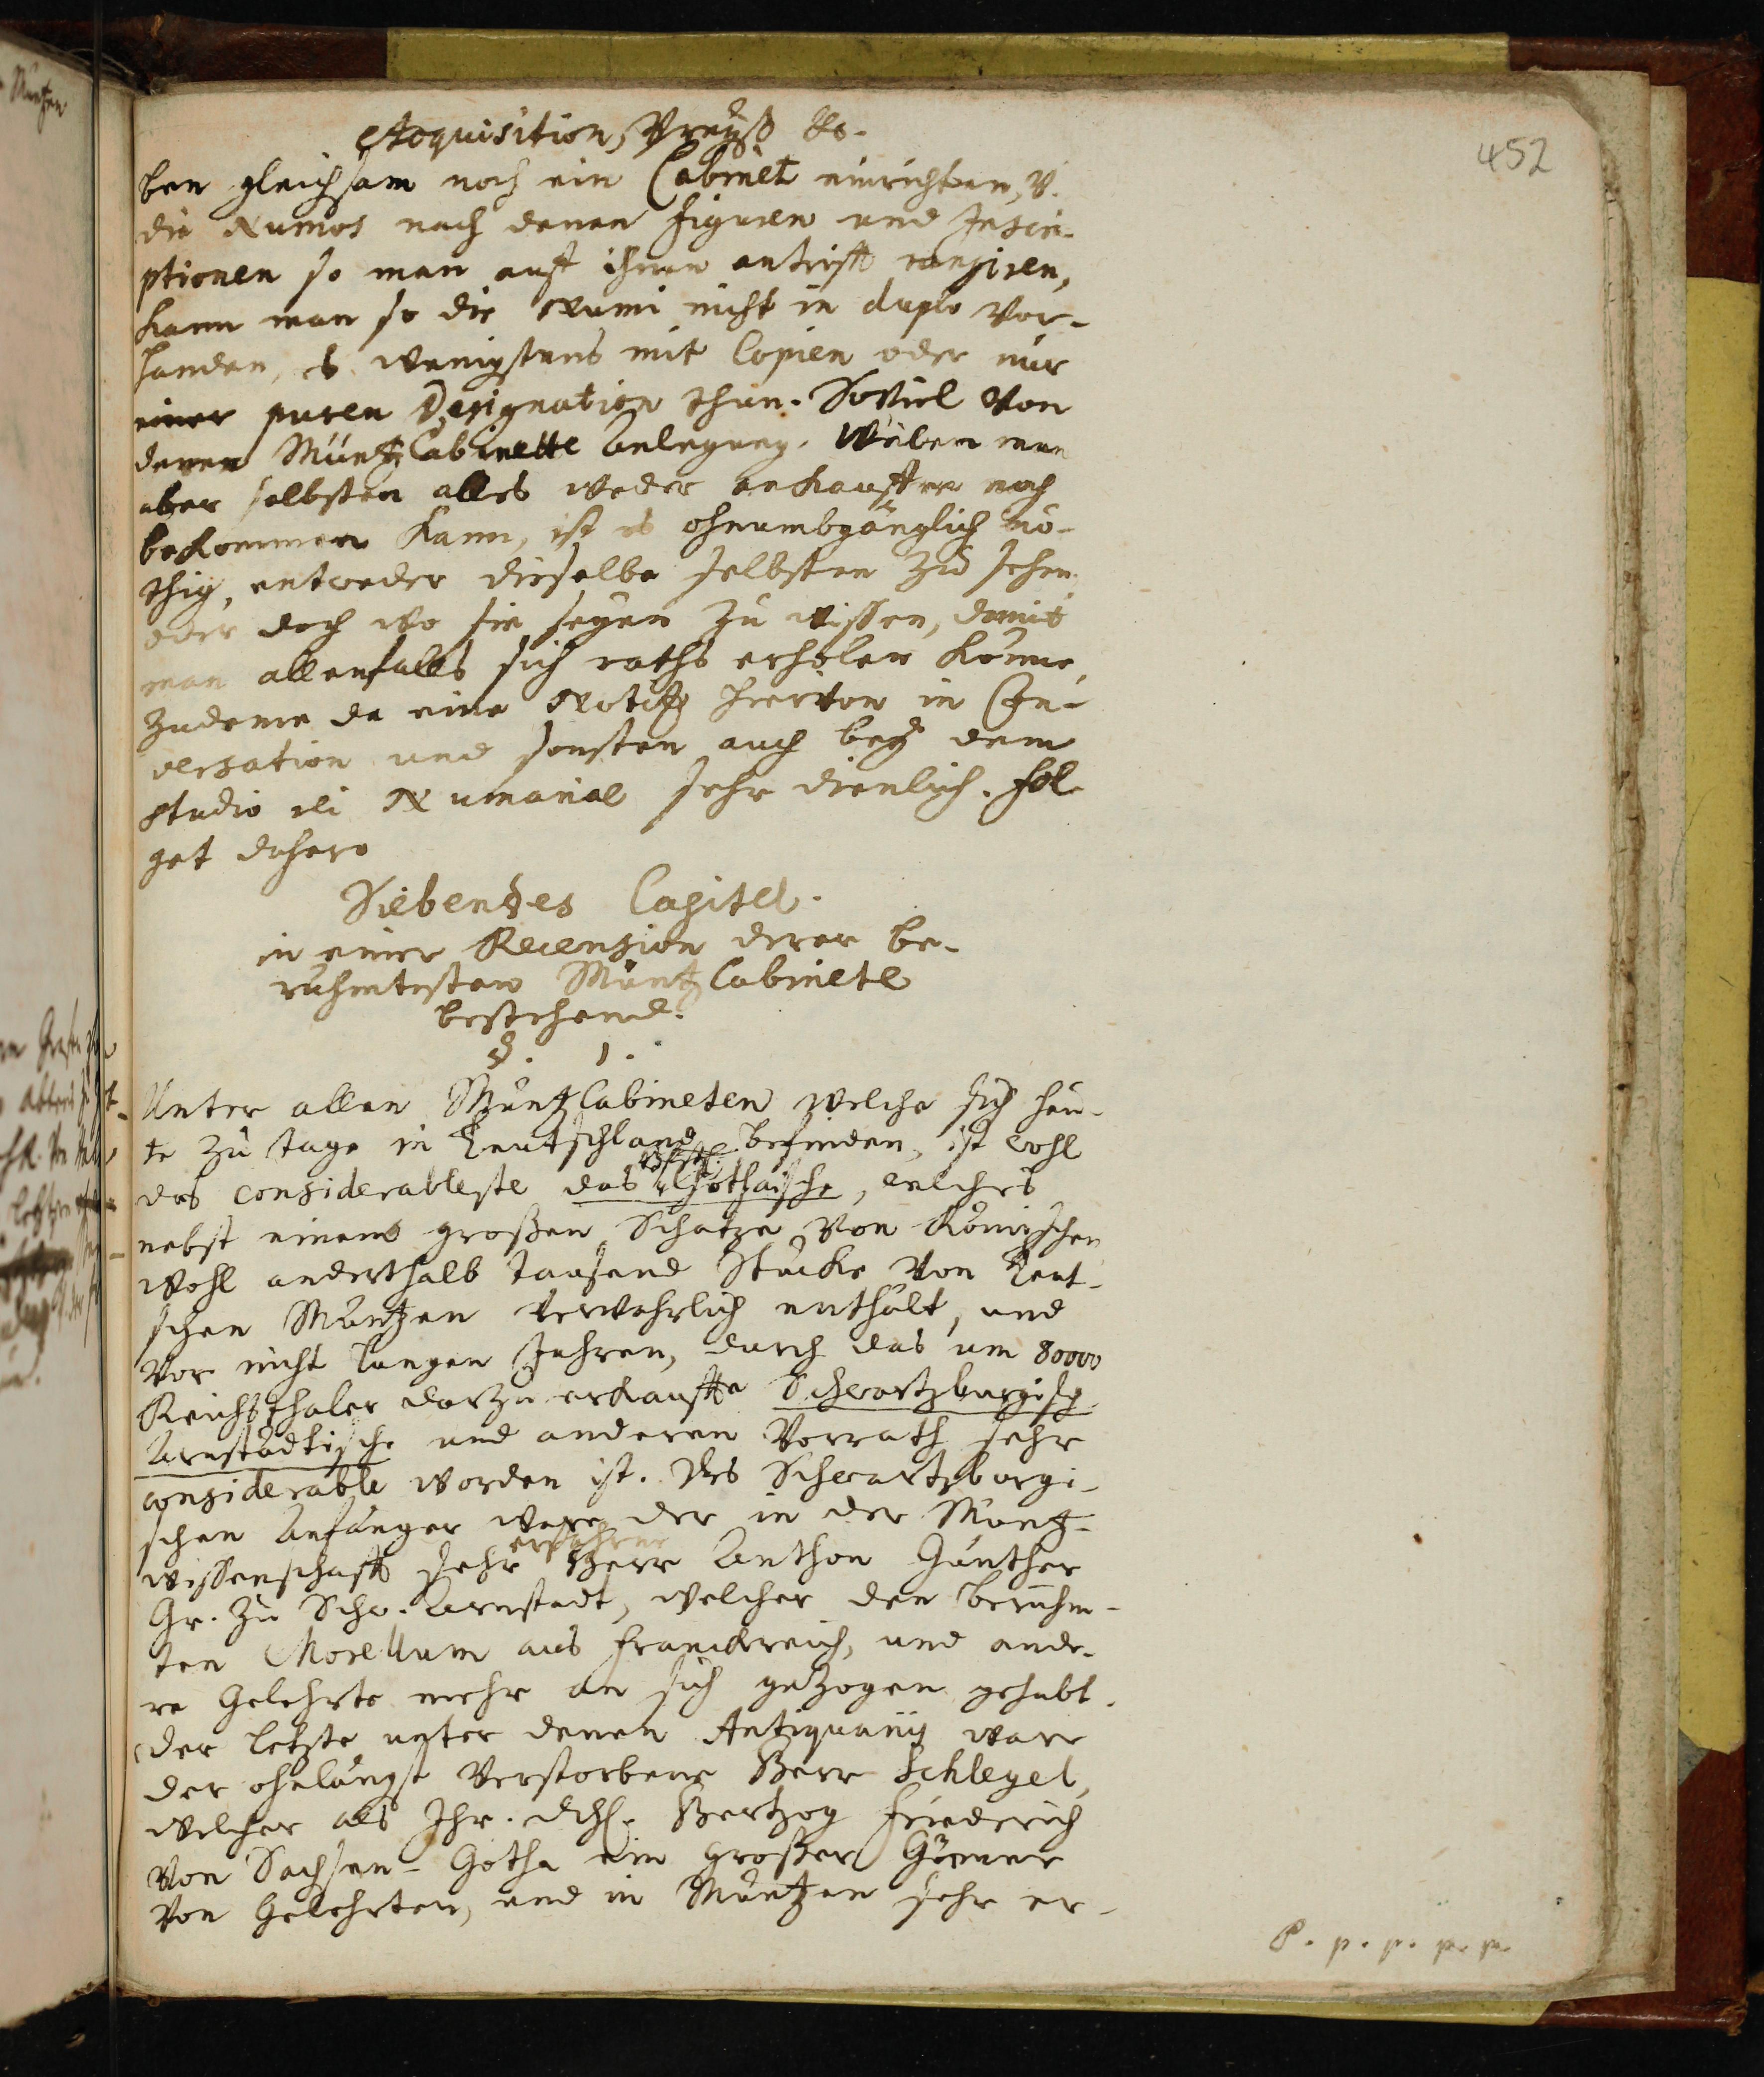 452
Acquisition, Preyß &c.
ben gleichsam noch ein Cabinet einrichten, v.
die Numos nach denen Figuren und Inscri-
ptionen so man auf ihnen antrifft rangiren,
kann man so die Numi nicht in duplo vor-
handen, es wenigstens mit Copien oder nur
einer puren Designation thun. Soviel von
denen Müntz Cabinette Anlegung. Weilen man
aber selbsten alles weder erkauffen noch
bekommen kann, ist es ohnumbgänglich nö-
thig, entweder dieselbe selbsten zu sehen
oder doch wo sie seyen zu wissen, damit
man allenfalls sich raths erholen könne,
zudeme da eine Notitz hiervon in Con-
versation und sonsten auch bey dem
studio rei Numariae sehr dienlich. Fol-
get dahero
Siebendes Capitel.
in einer Recension derer be-
rühmtesten Müntz Cabinete
bestehend.
§. 1.
Unter allen Müntz Cabineten welche sich heu-
te zu tage in Teutschland befinden, ist wohl
das considerableste das Gothaische, welches
nebst einem großen Schatze von Römischen
wohl anderthalb tausend Stücke von Teut-
schen Müntzen verwahrlich enthält, und
vor nicht langen Jahren, durch das um 80000
Reichsthaler darzu erkauffte Schwartzburgisch
Arnstädtische und anderen Vorrath sehr
considerable worden ist. Des Schwartzburgi-
schen Anfänger ware der in der Müntz-
wissenschafft sehr erfahrne Herr Anthon Günther
Gr. zu Schw. Arnstadt, welcher den berühm-
ten Morellum aus Franckreich, und ande-
re Gelehrte mehr an sich gezogen gehabt.
der letzte unter denen Antiquariis ware
der ohnlängst verstorbene Herr Schlegel,
welcher als Ihr. dchl. Hertzog Friederich
von Sachsen-Gotha ein großer Gönner
von Gelehrten, und in Müntzen sehr er-
P. p. p. p. p.